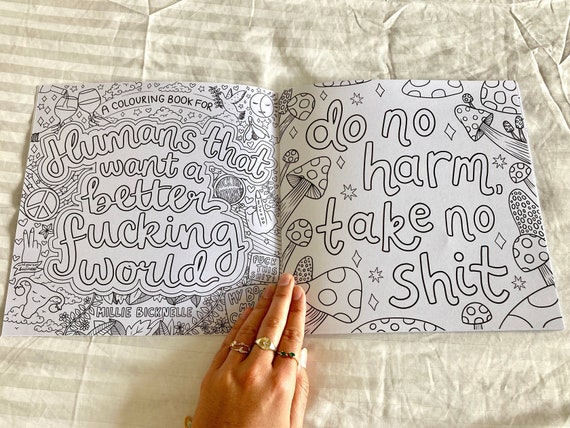 A COLOURING BOOK FOR
Humans that
want a
better
fucking
world
FUCK
THIS
MILLIE BICKNELLE
do no
harm,
take no
shit